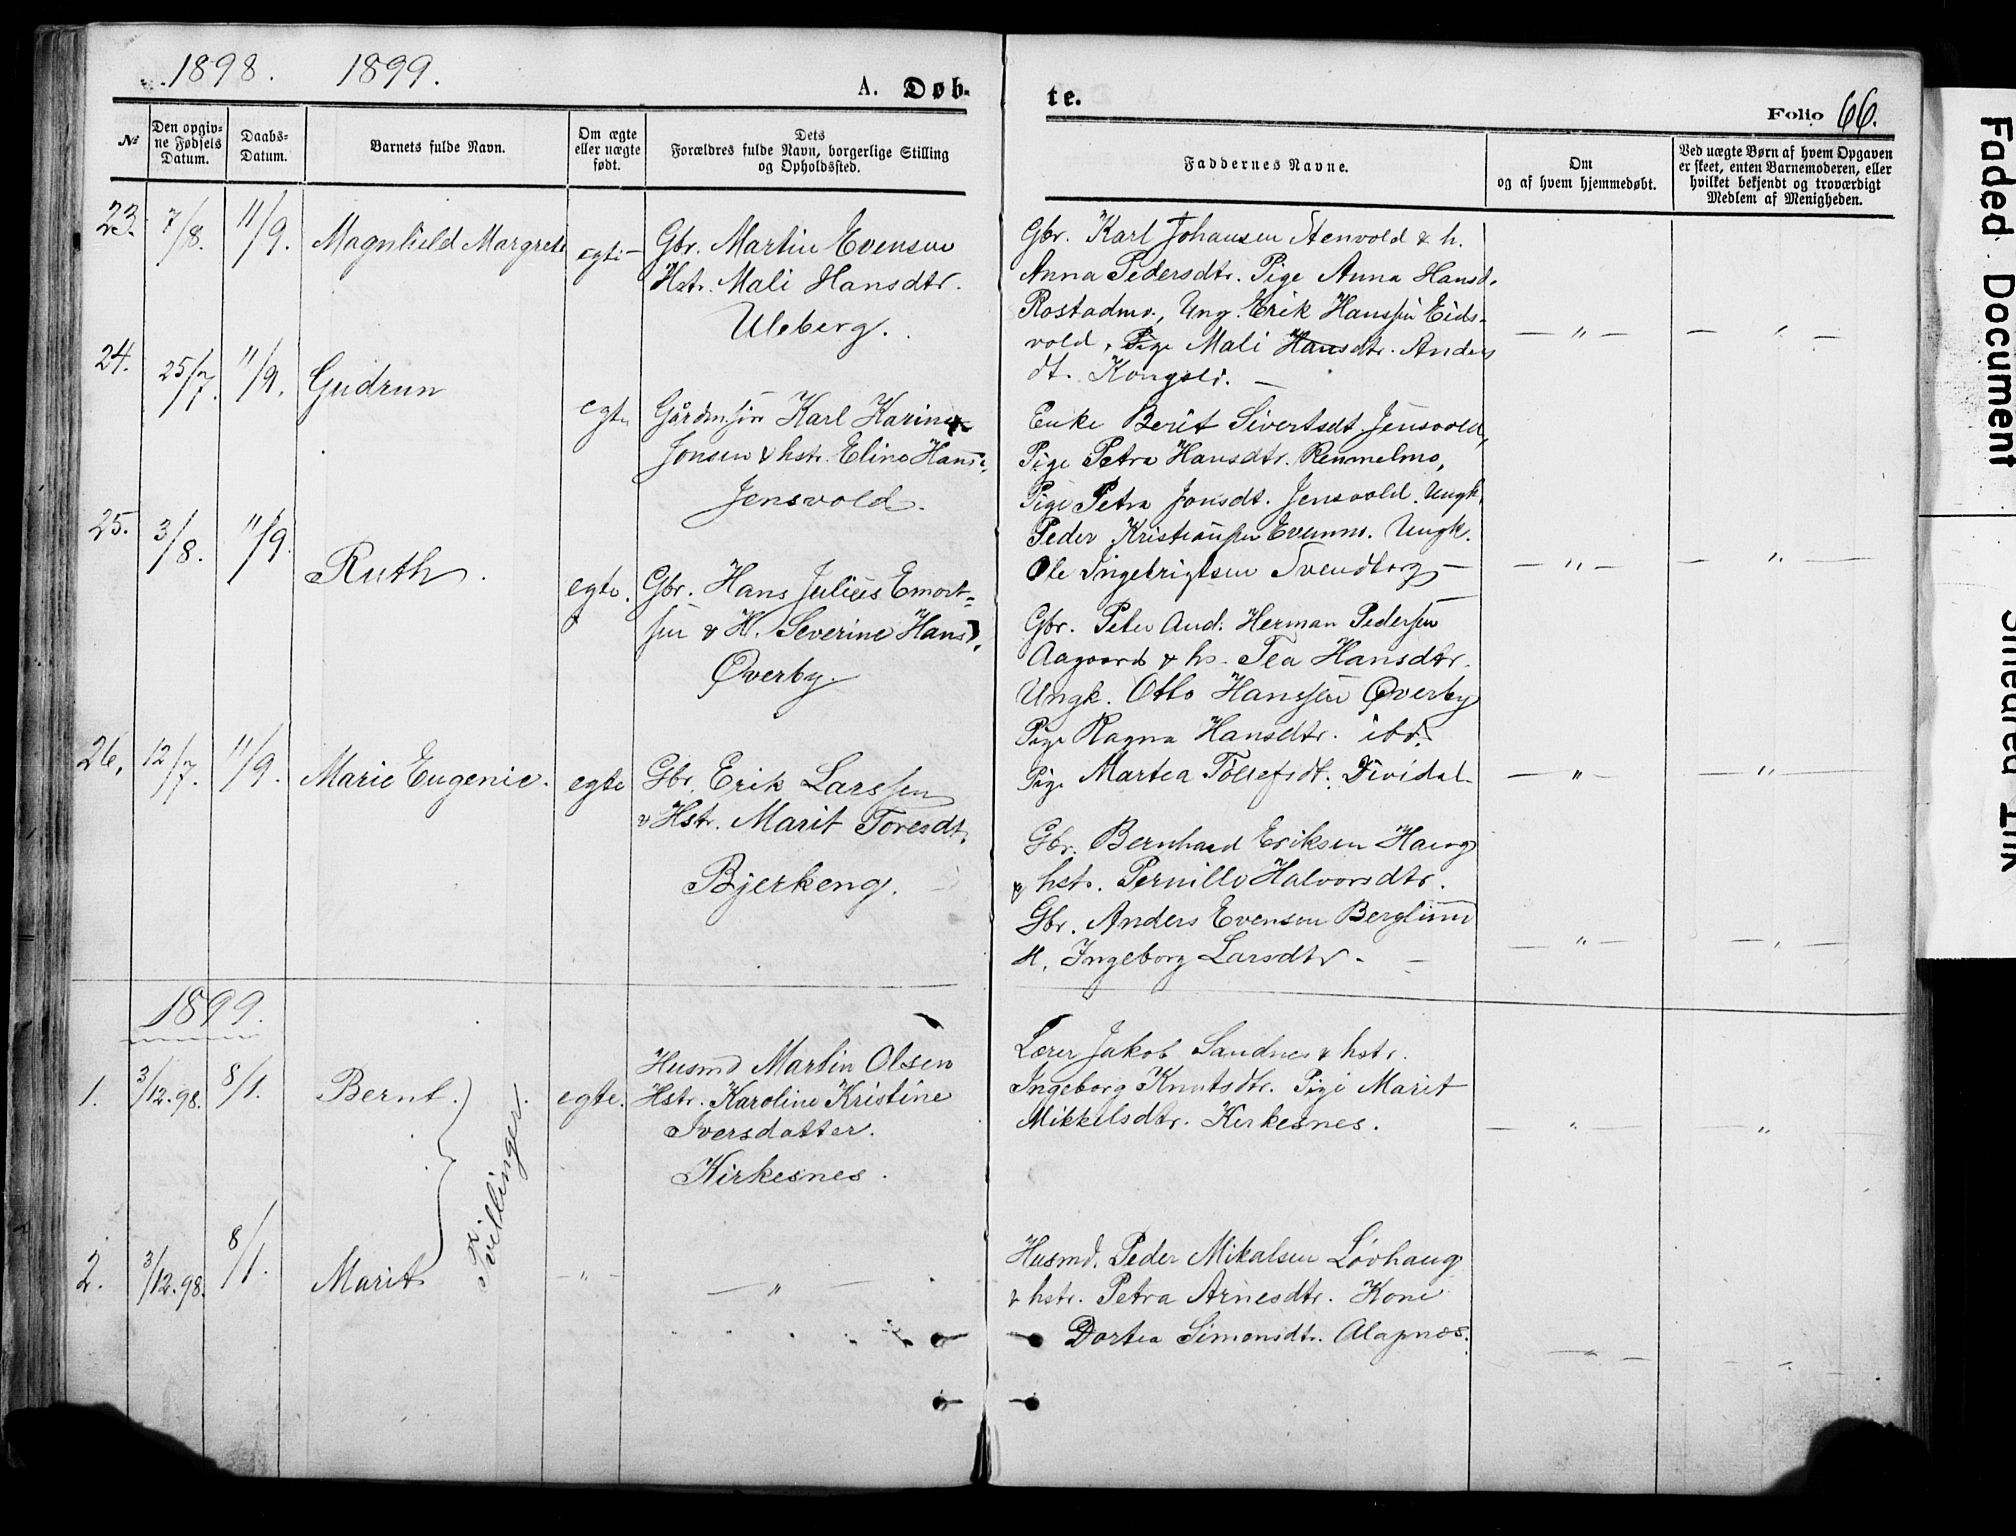 1898. 1899.
A. Døb-
te.
Folio 66.
№
Den opgiv-
ne Fødsels
Datum.
Daabs-
Datum.
Barnets fulde Navn.
Om ægte
eller uægte
født.
Dets
Forældres fulde Navn, borgerlige Stilling
og Opholdssted.
Faddernes Navne.
Om
og af hvem hjemmedøbt.
Ved uægte Børn af hvem Opgaven
er skeet, enten Barnemoderen, eller
hvilket bekjendt og troværdigt
Medlem af Menigheden.
23. 7/8. 11/9. Magnhild Margrete egte
Gbr. Martin Evensen
Hstr. Mali Hansdtr.
Uleberg.
Gbr. Karl Johansen Stenvold & h.
Anna Pedersdtr. Pige Anna Hansd.
Rostadmo, Ung. Erik Hanssen Eids-
vold, Pige Mali Hansdtr. Anders
dt. Kongsli. —
— " — — " —
24. 25/7. 11/9. Gudrun egte
Gårdm. Karl
Jonsen & hstr. Eline Hans
Jensvold.
Enke Berit Sivertsdt. Jensvold,
Pige Petra Hansdtr. Remmelmo,
Pige Petra Jonsdt. Jensvold. Ungk.
Peder Kristiansen Evenmo. Ungk.
Ole Ingebrigtsen Svendborg —
— " — — " —
25. 3/8. 11/9. Ruth. egte.
Gbr. Hans Julius Emort-
sen & H. Severine Hansd.
Øverby.
Gbr. Peter And. Herman Pedersen
Aagaard & hs. Tea Hansdtr.
Ungk. Otto Hanssen Øverby
Pige Ragna Hansdtr. ibd.
Pige Martea Tollefsdt. Dividal
— " — — " —
26. 12/7. 11/9. Marie Eugenie. egte
Gbr. Erik Larssen
& Hstr. Marit Toresdt.
Bjerkeng.
Gbr. Bernhard Eriksen Haug
& hstr. Pernille Halvorsdtr.
Gbr. Anders Evensen Berglund
H. Ingeborg Larsdtr. —
— " — — " —
1899.
1. 3/12.98. 8/1. Bernt. egte.
Husmd Martin Olsen
Hstr. Karoline Kristine
Iversdatter.
Kirkesnes.
Lærer Jakob Sandnes & hstr.
Ingeborg Knutsdtr. Pige Marit
Mikkelsdtr. Kirkesnes.
— " — "
Tvillinger
2. 3/12.98. 8/1. Marit — " — — " —
Husmd. Peder Mikalsen Løvhaug
& hstr. Petra Arnesdtr. Kone
Dortea Simonsdtr. Olapnes.
Faded Document
Smeared Ink